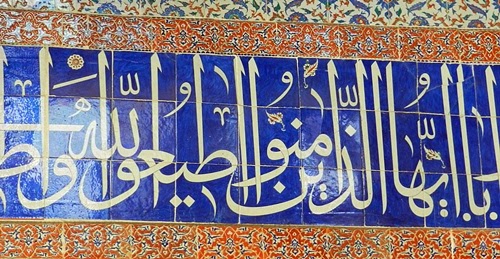 يا ايها الذين امنوا اطيعوا الله واط